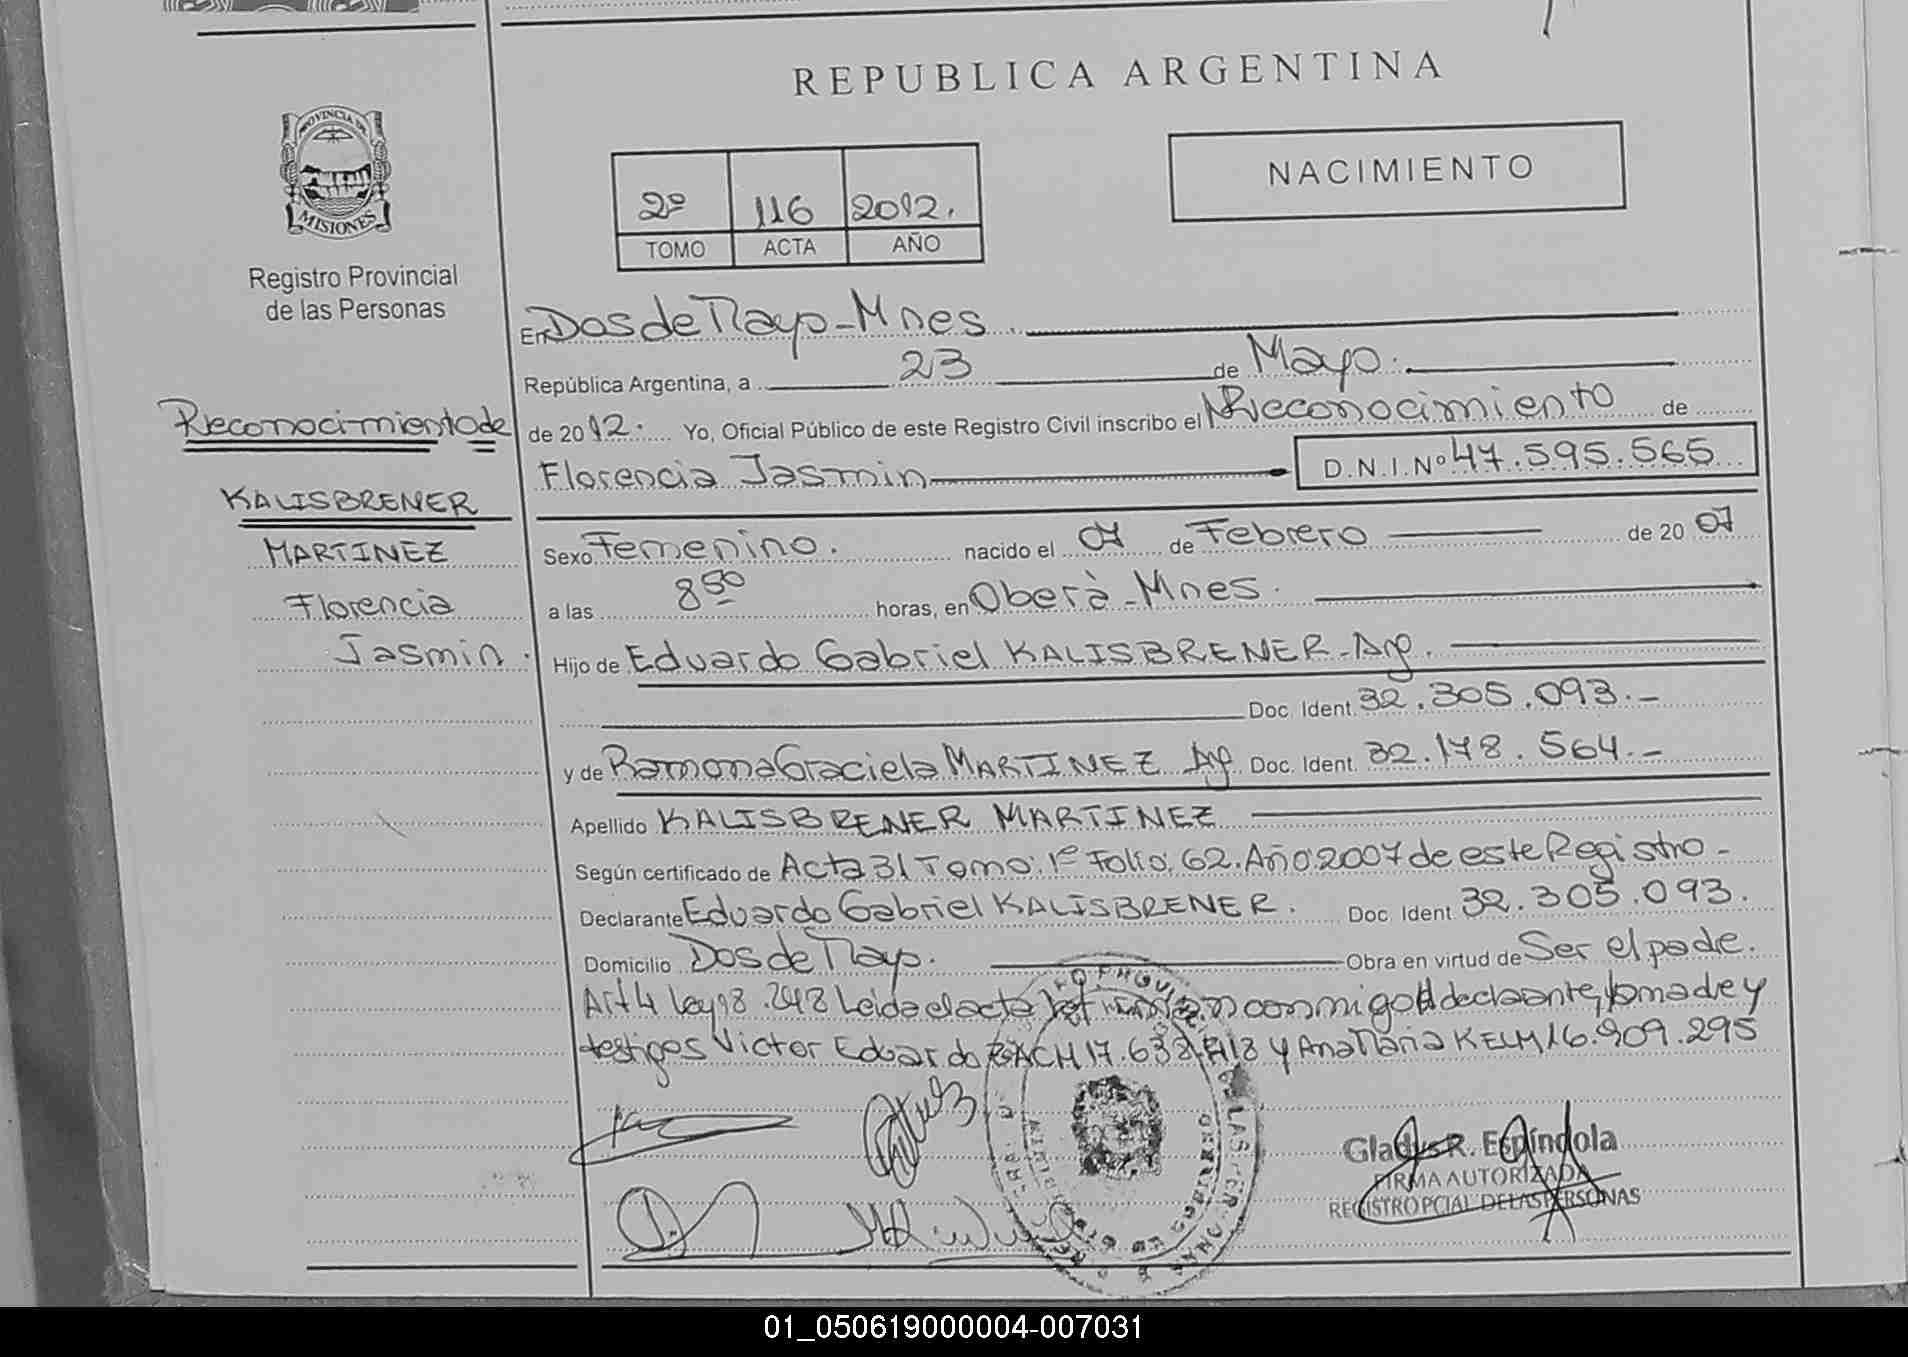 REPUBLICA ARGENTINA
PROVINCIA DE
MISIONES
Registro Provincial
de las Personas
2º 116 2012.
TOMO ACTA AÑO
NACIMIENTO
Reconocimiento de
KALISBRENER
MARTINEZ
Florencia
Jasmin.
En Dos de Mayo-Mnes.
República Argentina, a 23 de Mayo.
de 2012. Yo, Oficial Público de este Registro Civil inscribo el Reconocimiento de
Florencia Jasmin D.N.I.Nº 47.595.565
Sexo Femenino. nacido el 07 de Febrero de 2007
a las 8 50 horas, en Oberà-Mnes.
Hijo de Eduardo Gabriel KALISBRENER-Arg.
Doc. Ident. 32.305.093.-
y de Ramona Graciela MARTINEZ Arg. Doc. Ident. 32.178.564.-
Apellido KALISBRENER MARTINEZ
Según certificado de Acta 31 Tomo: 1º Folio: 62. Año 2007 de este Registro-
Declarante Eduardo Gabriel KALISBRENER. Doc. Ident 32.305.093.
Domicilio Dos de Mayo. Obra en virtud de Ser el padre.
Art 4 Ley 18.248 Leida el acta la firman conmigo el declarante, la madre y
testigos Victor Eduardo BACH 17.638. y Ana Maria KELM 16.909.295
Gladys R. Espíndola
FIRMA AUTORIZADA
REGISTRO PCIAL DE LAS PERSONAS
01_050619000004-007031